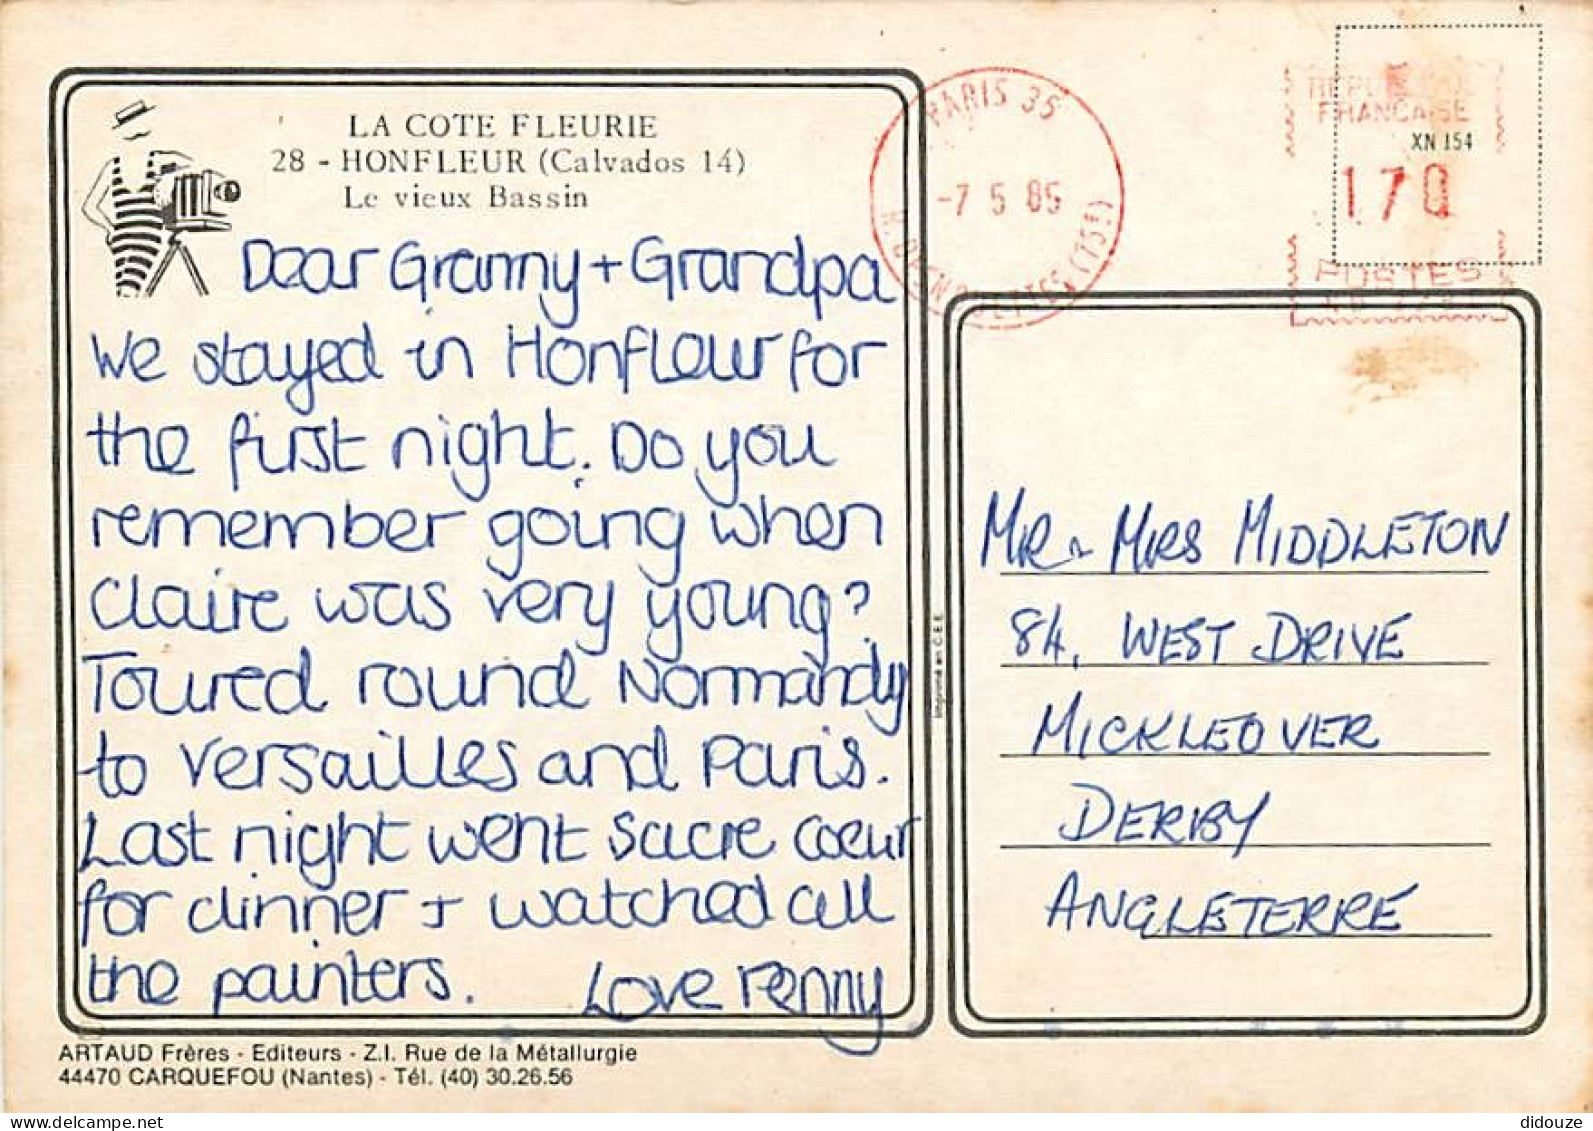 LA COTE FLEURIE
28 - HONFLEUR (Calvados 14)
Le vieux Bassin
Dear Granny + Grandpa
We stayed in Honfleur for
the first night. Do you
remember going when
Claire was very young?
Toured round Normandy
to Versailles and Paris.
Last night went Sacre Coeur
for dinner + watched all
the painters. Love Penny
ARTAUD Frères - Editeurs - Z.I. Rue de la Métallurgie
44470 CARQUEFOU (Nantes) - Tél. (40) 30.26.56
Imprimé en C.E.E.
PARIS 35
-7 5 85
REPUBLIQUE
FRANCAISE
XN 154
170
POSTES
MR & MRS MIDDLETON
84, WEST DRIVE
MICKLEOVER
DERBY
ANGLETERRE
delcampe.net
didouze